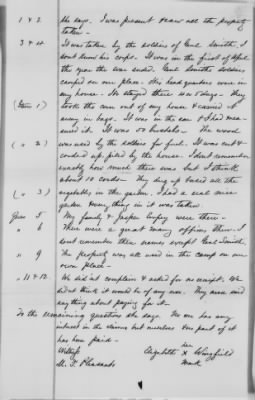 1 & 2 She says. I was present & saw all the property
taken -
3 & 4 It was taken by the soldiers of Genl Smith, I
dont know his corps. It was in the first of April
the year the war ended. Genl Smiths soldiers
camped on our place - His head quarters were in
my house - He stayed there 10 or 12 days - They
(Item 1) took the corn out of my house & carried it
away in bags. It was in the ear & I had mea-
sured it. It was 50 bushels - The wood
( " 2) was used by the soldiers for fuel. It was cut &
corded up piled by the house. I dont remember
exactly how much there was but I think
about 10 cords - They dug up & used all the
( " 3) vegetables in the garden. I had a real nice
garden & every thing in it was taken.
Ques 5 My family & Jasper were there -
" 6 There were a great many officers there. I
dont remember their names except Genl Smith.
" 9 The property was all used in the camp on our
own place -
" 11 & 12 We did not complain & asked for no receipt. We
did not think it would be of any use. They never said
any thing about paying for it -
To the remaining questions she says. No one has any
interest in the claim but ourselves & no part of it
has been paid -
Witness her
Elizabeth x Wingfield
M. F. Pleasants mark